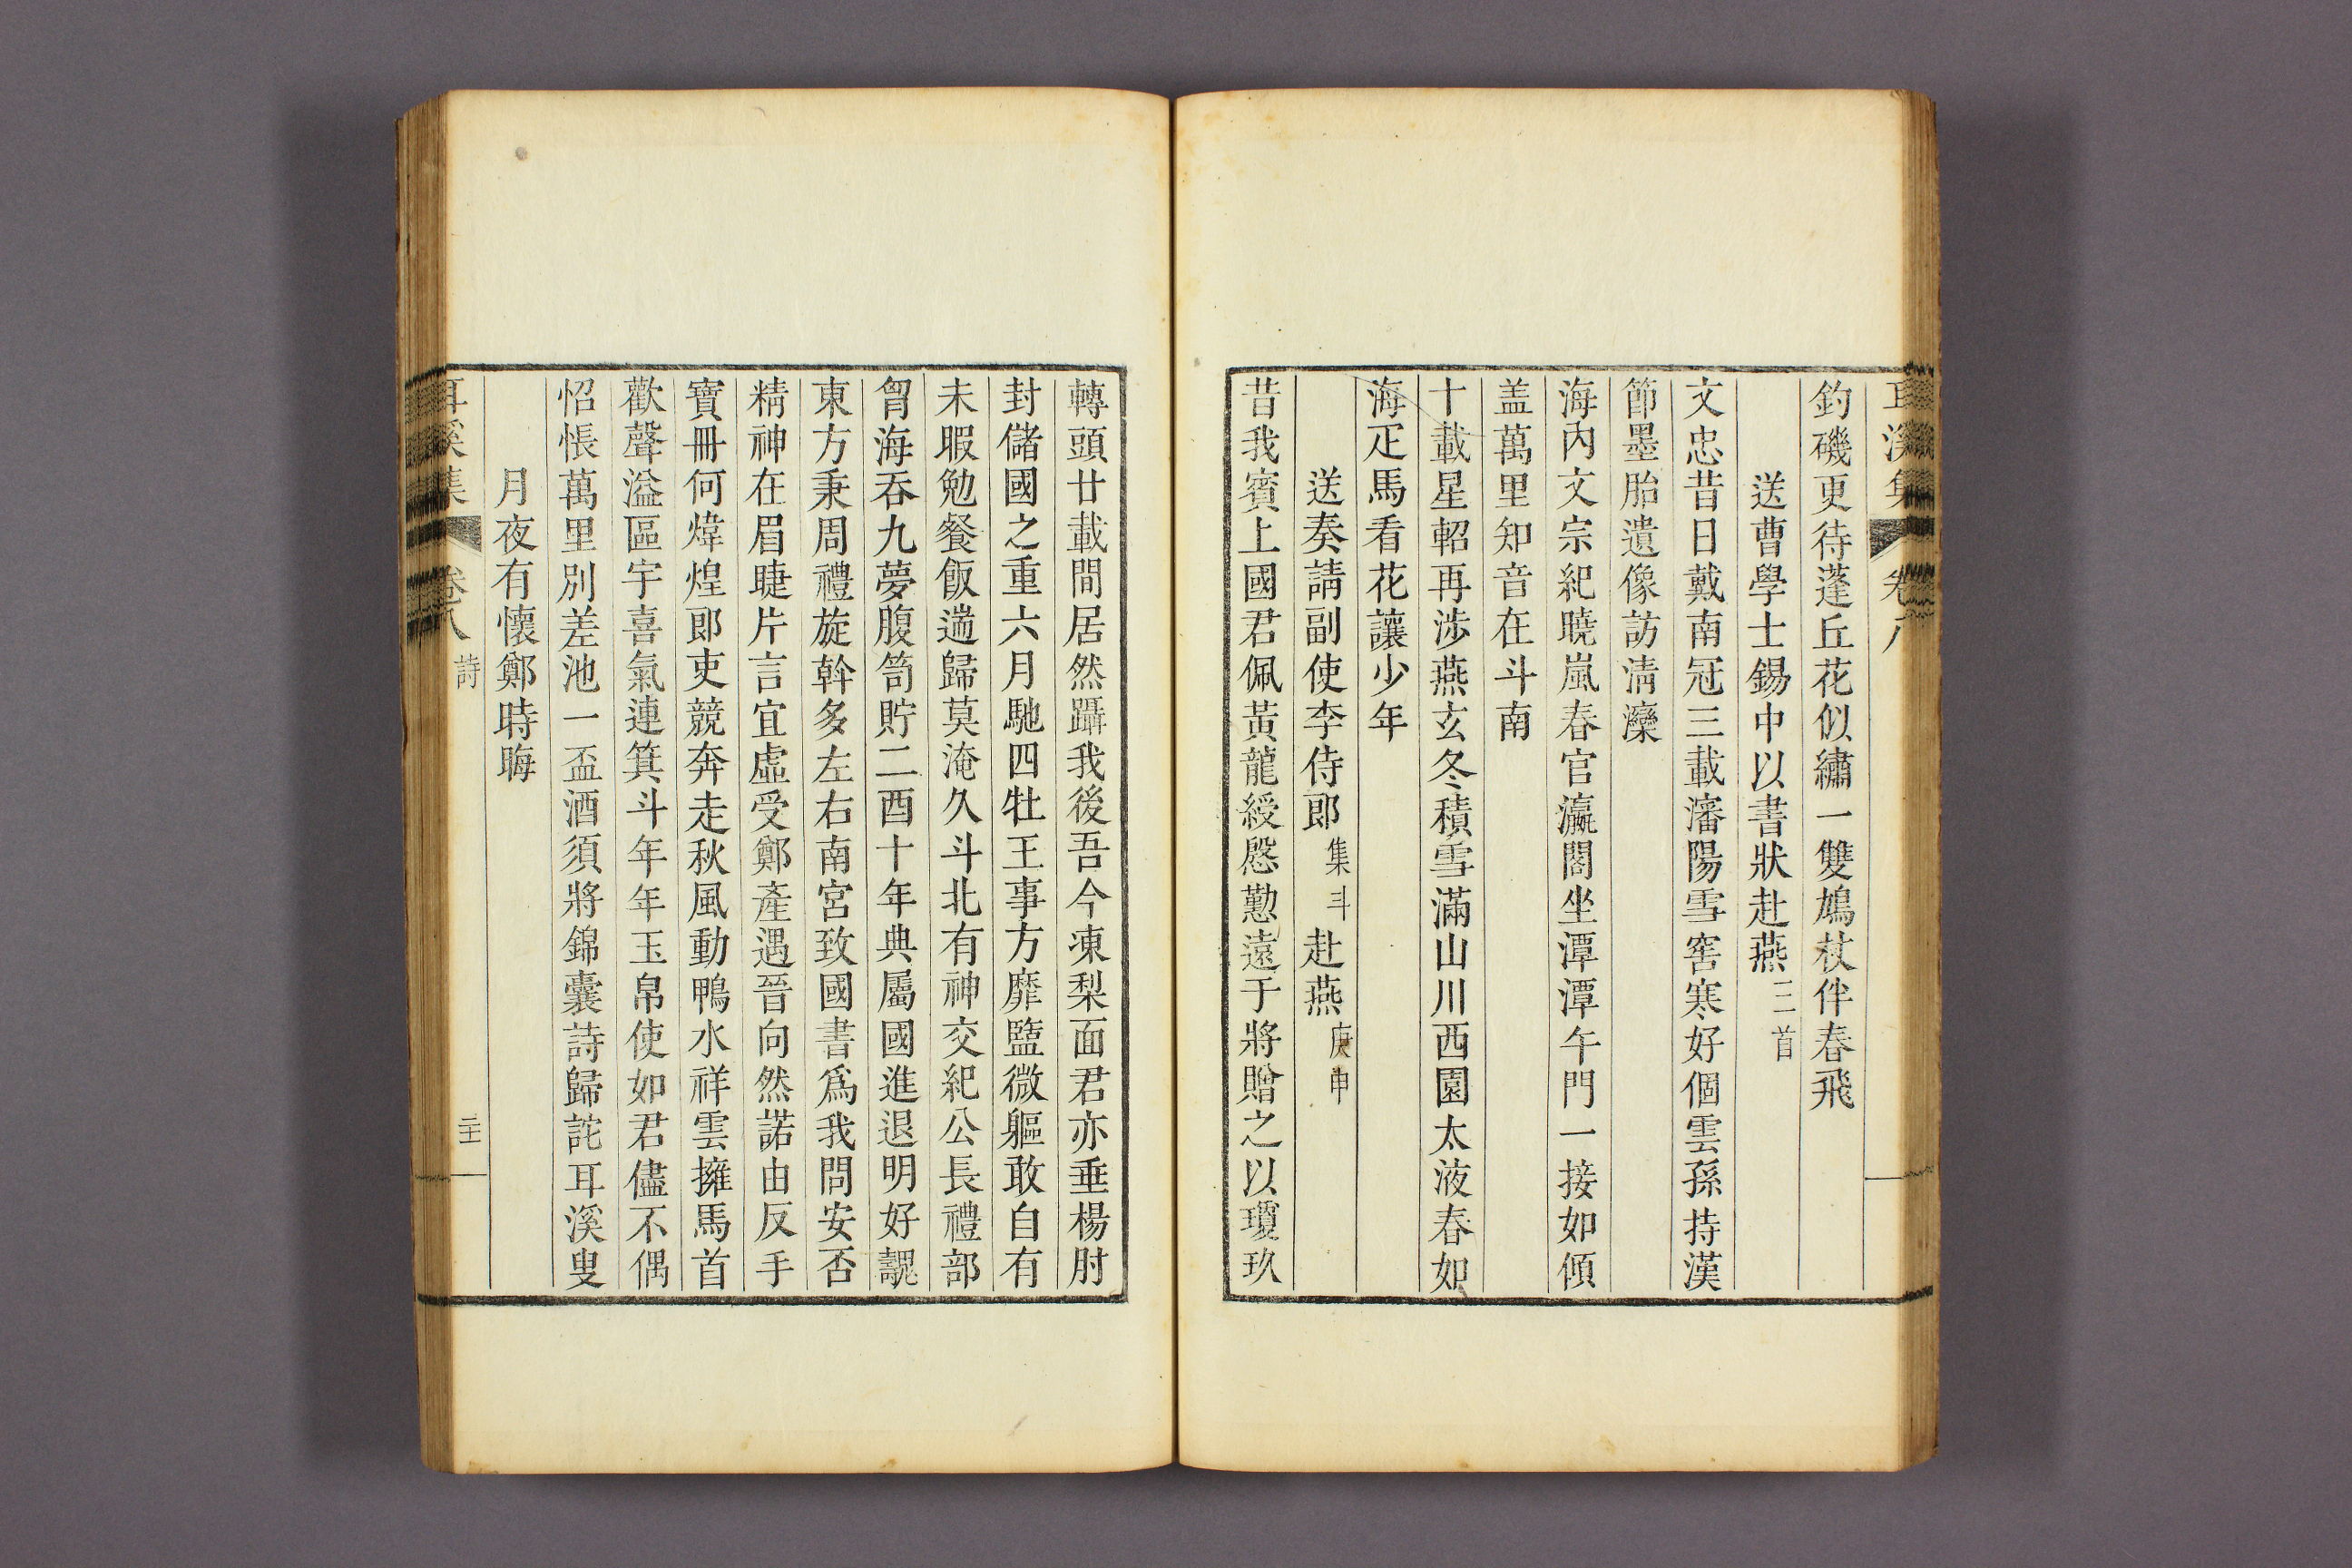 耳溪集 卷八
釣磯更待蓬丘花似繡一雙鳩杖伴春飛
送曹學士錫中以書狀赴燕三首
文忠昔日戴南冠三載瀋陽雪窖寒好個雲孫持漢
節墨胎遺像訪淸灤
海內文宗紀曉嵐春官瀛閣坐潭潭午門一接如傾
盖萬里知音在斗南
十載星軺再涉燕玄冬積雪滿山川西園太液春如
海疋馬看花讓少年
送奏請副使李侍郎集斗赴燕庚申
昔我賓上國君佩黃龍綬慇懃遠于將贈之以瓊玖
轉頭廿載間居然躡我後吾今凍梨面君亦垂楊肘
封儲國之重六月馳四牡王事方靡盬微軀敢自有
未暇勉餐飯遄歸莫淹久斗北有神交紀公長禮部
胷海吞九夢腹笥貯二酉十年典屬國進退明好覶
東方秉周禮旋斡多左右南宮致國書爲我問安否
精神在眉睫片言宜虛受鄭產遇晉向然諾由反手
寶冊何煒煌郎吏競奔走秋風動鴨水祥雲擁馬首
歡聲溢區宇喜氣連箕斗年年玉帛使如君儘不偶
怊悵萬里別差池一盃酒須將錦囊詩歸詑耳溪叟
月夜有懷鄭時晦
耳溪集 卷八 詩 二十一